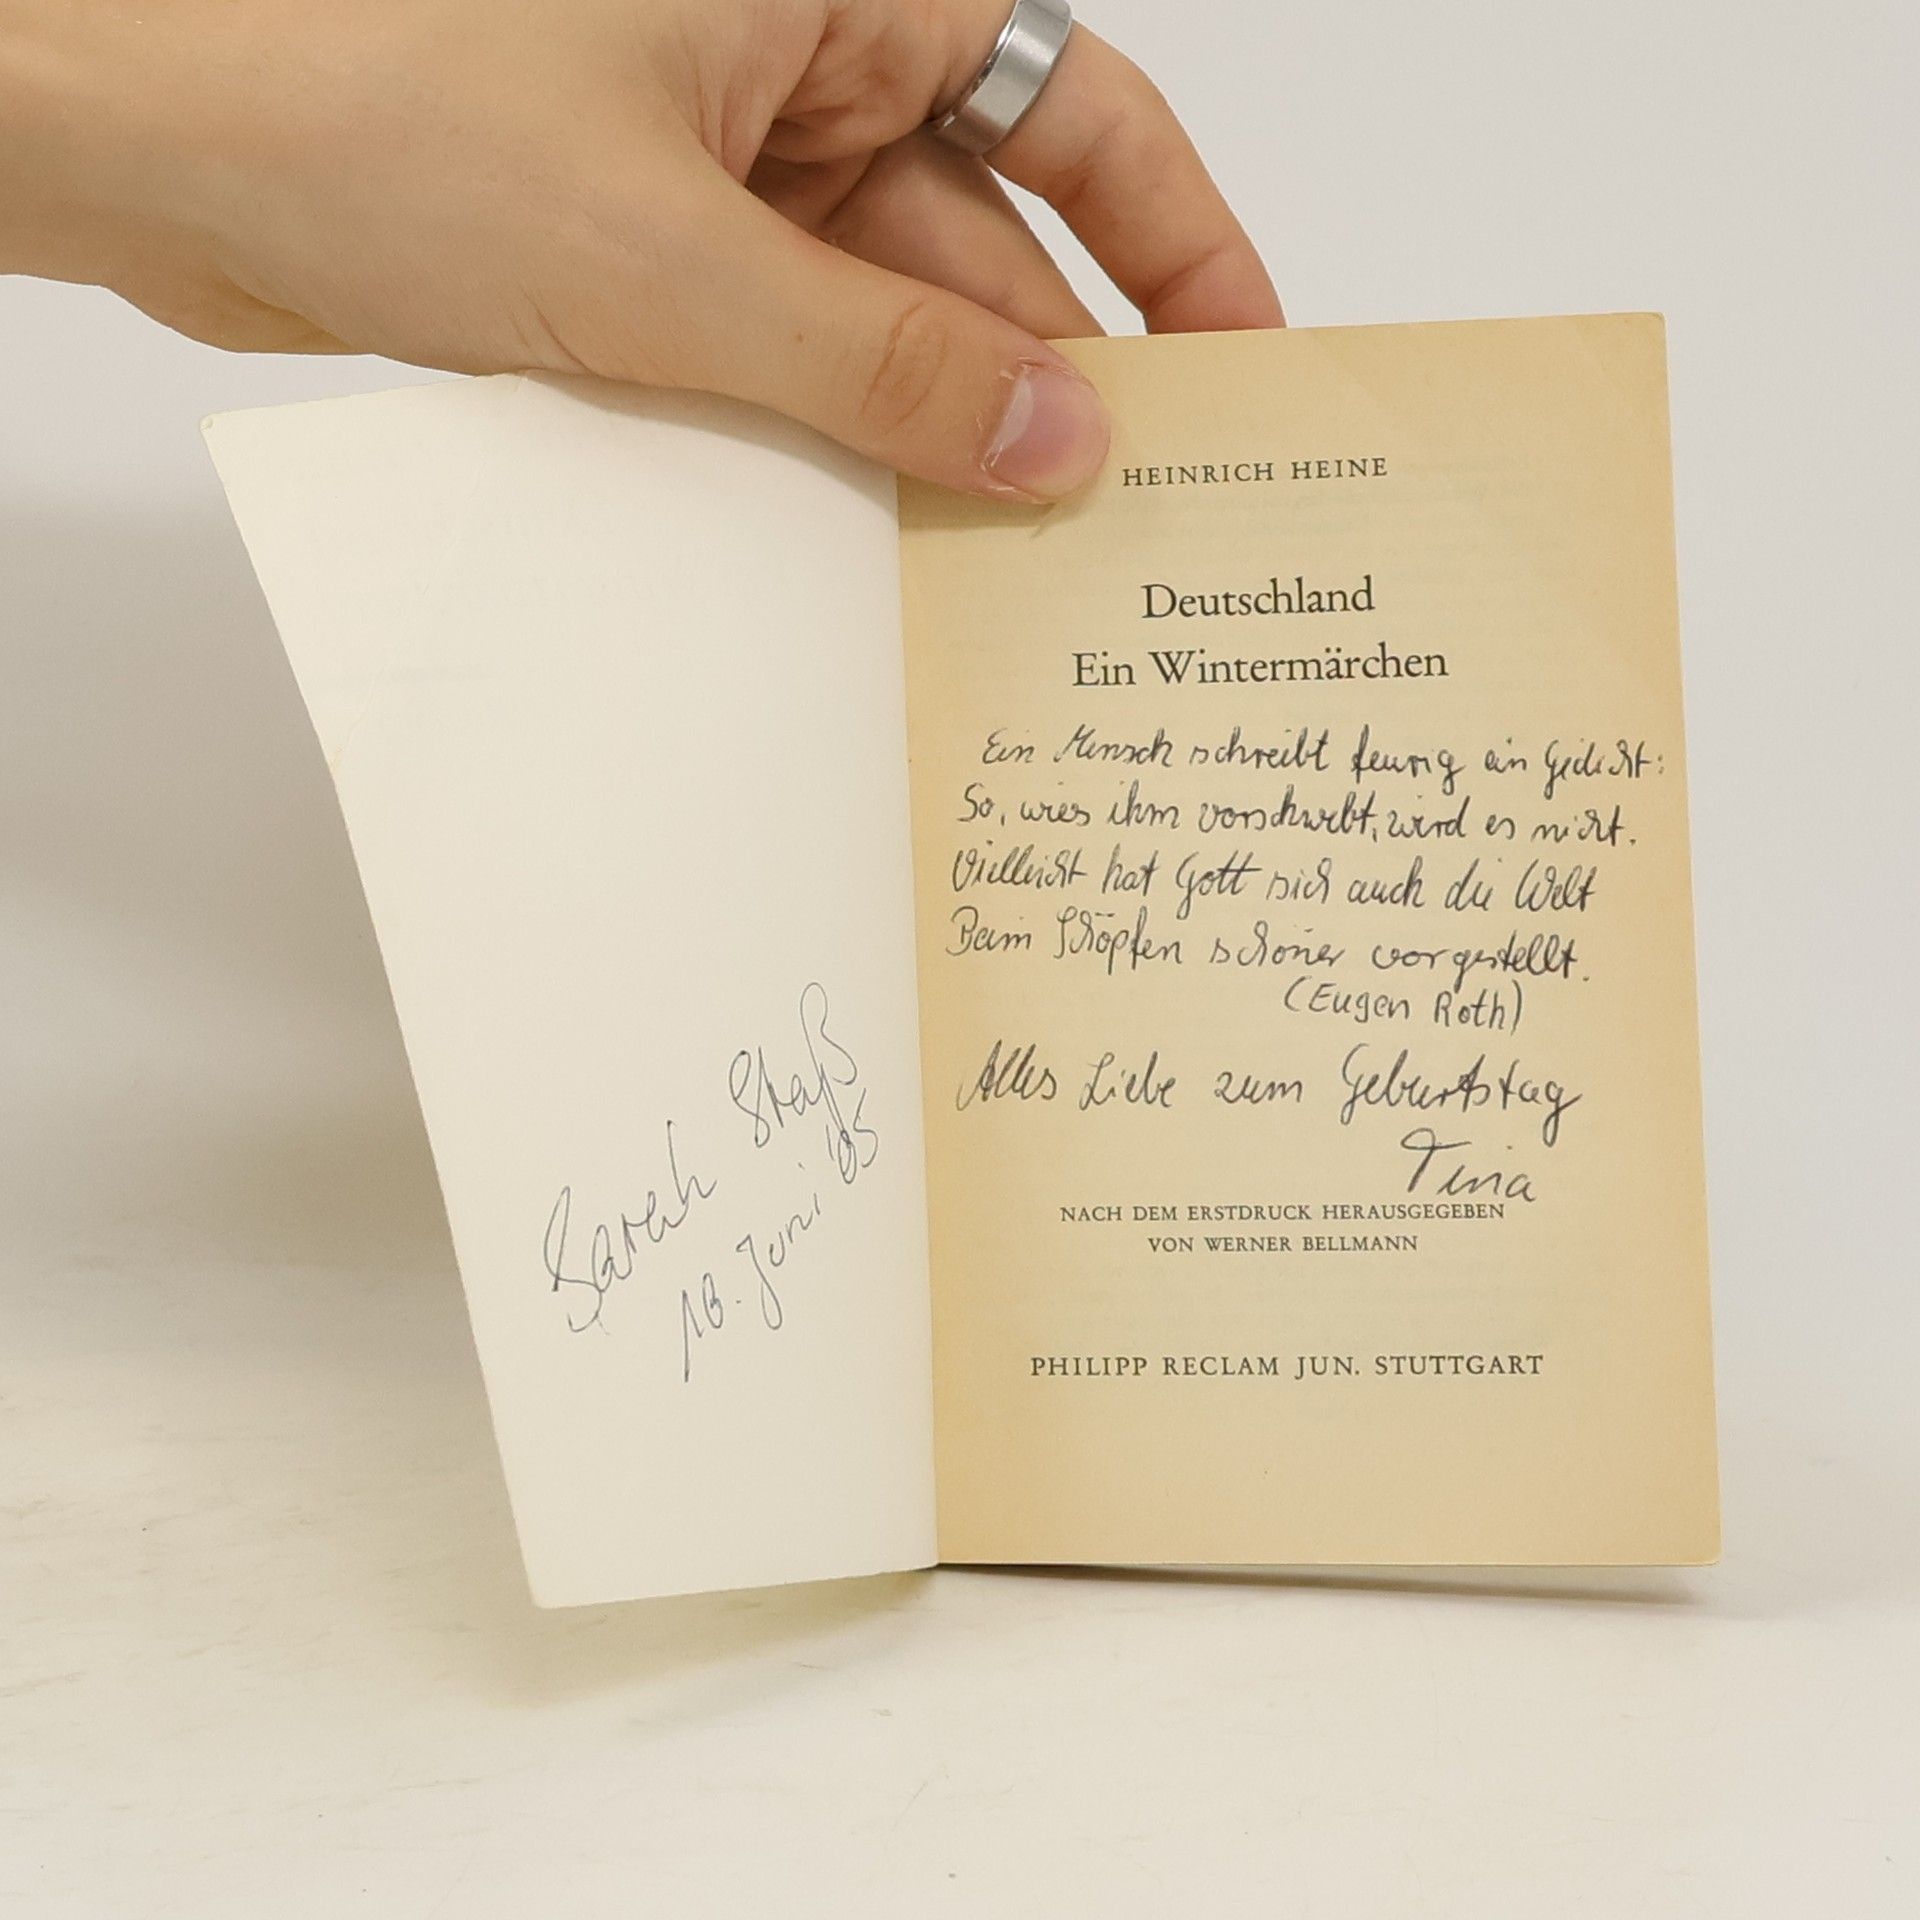 Sarah Staß
10. Juni '05
HEINRICH HEINE
Deutschland
Ein Wintermärchen
Ein Mensch schreibt feurig ein Gedicht:
So, wies ihm vorschwebt, wird es nicht.
Vielleicht hat Gott sich auch die Welt
Beim Schöpfen schöner vorgestellt.
(Eugen Roth)
Alles Liebe zum Geburtstag
Tina
NACH DEM ERSTDRUCK HERAUSGEGEBEN
VON WERNER BELLMANN
PHILIPP RECLAM JUN. STUTTGART